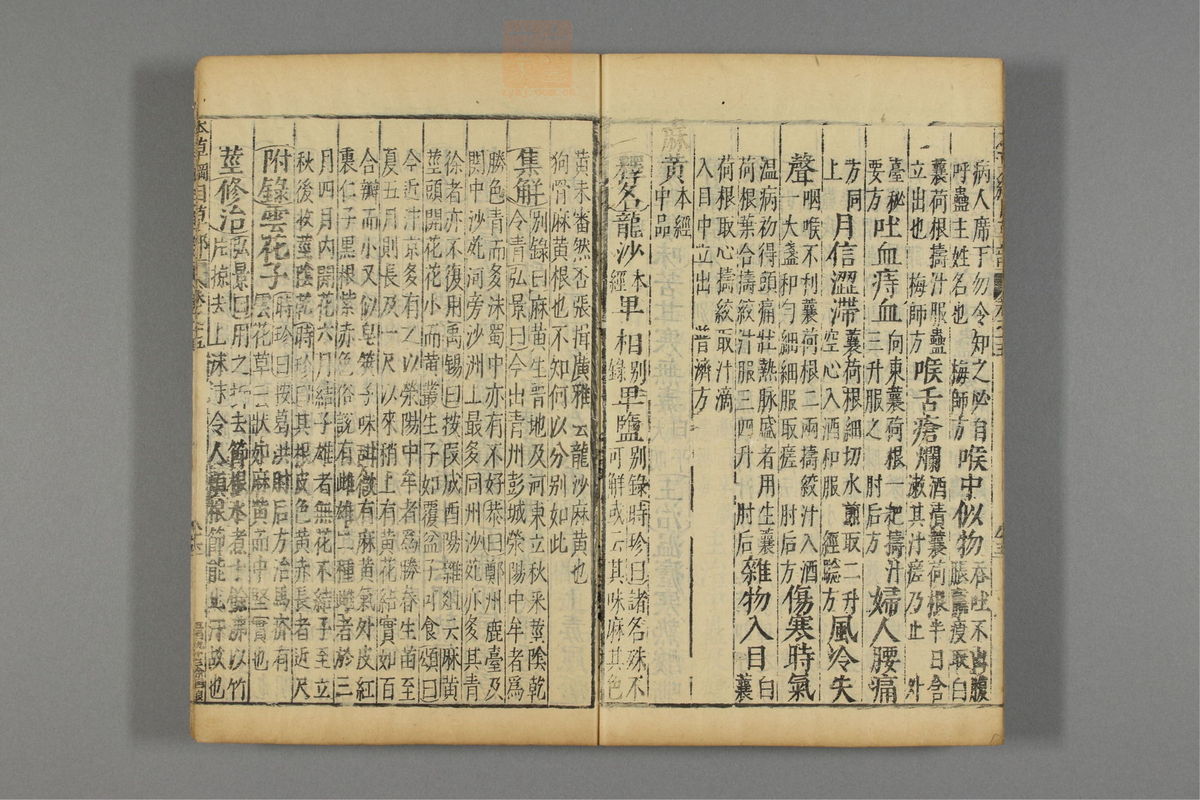 病人席下勿令知之必自 喉中似物吞吐不出腹
呼蠱主姓名也 梅師方 脹羸瘦取白
蘘荷根擣汁服蠱 喉舌瘡爛酒漬蘘荷根半日含
立出也 梅師方 漱其汁瘥乃止 外
臺秘 吐血痔血向東蘘荷根一把擣汁 婦人腰痛
要方 三升服之 肘后方
方同 月信澀滯蘘荷根細切水煎取二升 風冷失
上 空心入酒和服 經驗方
聲咽喉不利蘘荷根二兩擣絞汁入酒 傷寒時氣
一大盞和勻細細服取瘥 肘后方
温病初得頭痛壯熱脉盛者用生蘘 雜物入目白
荷根葉合擣絞汁服三四升 肘后 蘘
荷根取心擣絞取汁滴
入目中立出 普濟方
麻黃本經中品
釋名龍沙本經 卑相别錄 卑鹽别錄時珍曰諸名殊不
可解或云其味麻其色
黃未審然否張揖廣雅云龍沙麻黃也
狗骨麻黃根也不知何以分别如此
集解别錄曰麻黃生晋地及河東立秋采莖陰乾
令青弘景曰今出青州彭城滎陽中牟者爲
勝色青而多沫蜀中亦有不好恭曰鄭州鹿臺及
関中沙苑河旁沙洲上最多同州沙苑亦多其青
徐者亦不復用禹錫曰按段成酉陽雜爼云麻黃
莖頭開花花小而黃叢生子如覆盆子可食頌曰
今近汴京多有之以滎陽中牟者爲勝春生苗至
夏五月則長及一尺以來稍上有黃花結實如百
合瓣而小又似皂莢子味甜微有麻黃氣外皮紅
裏仁子黑根紫赤色俗說有雌雄二種雌者於三
月四月內開花六月結子雄者無花不結子至立
秋後收莖陰乾時珍曰其根皮色黃赤長者近尺
附錄雲花子時珍曰按葛洪肘后方治馬疥有
雲花草云狀如麻黃而中堅實也
莖修治弘景曰用之折去節根水煮十餘沸以竹
片掠去上沫沫令人煩根節能止汗故也